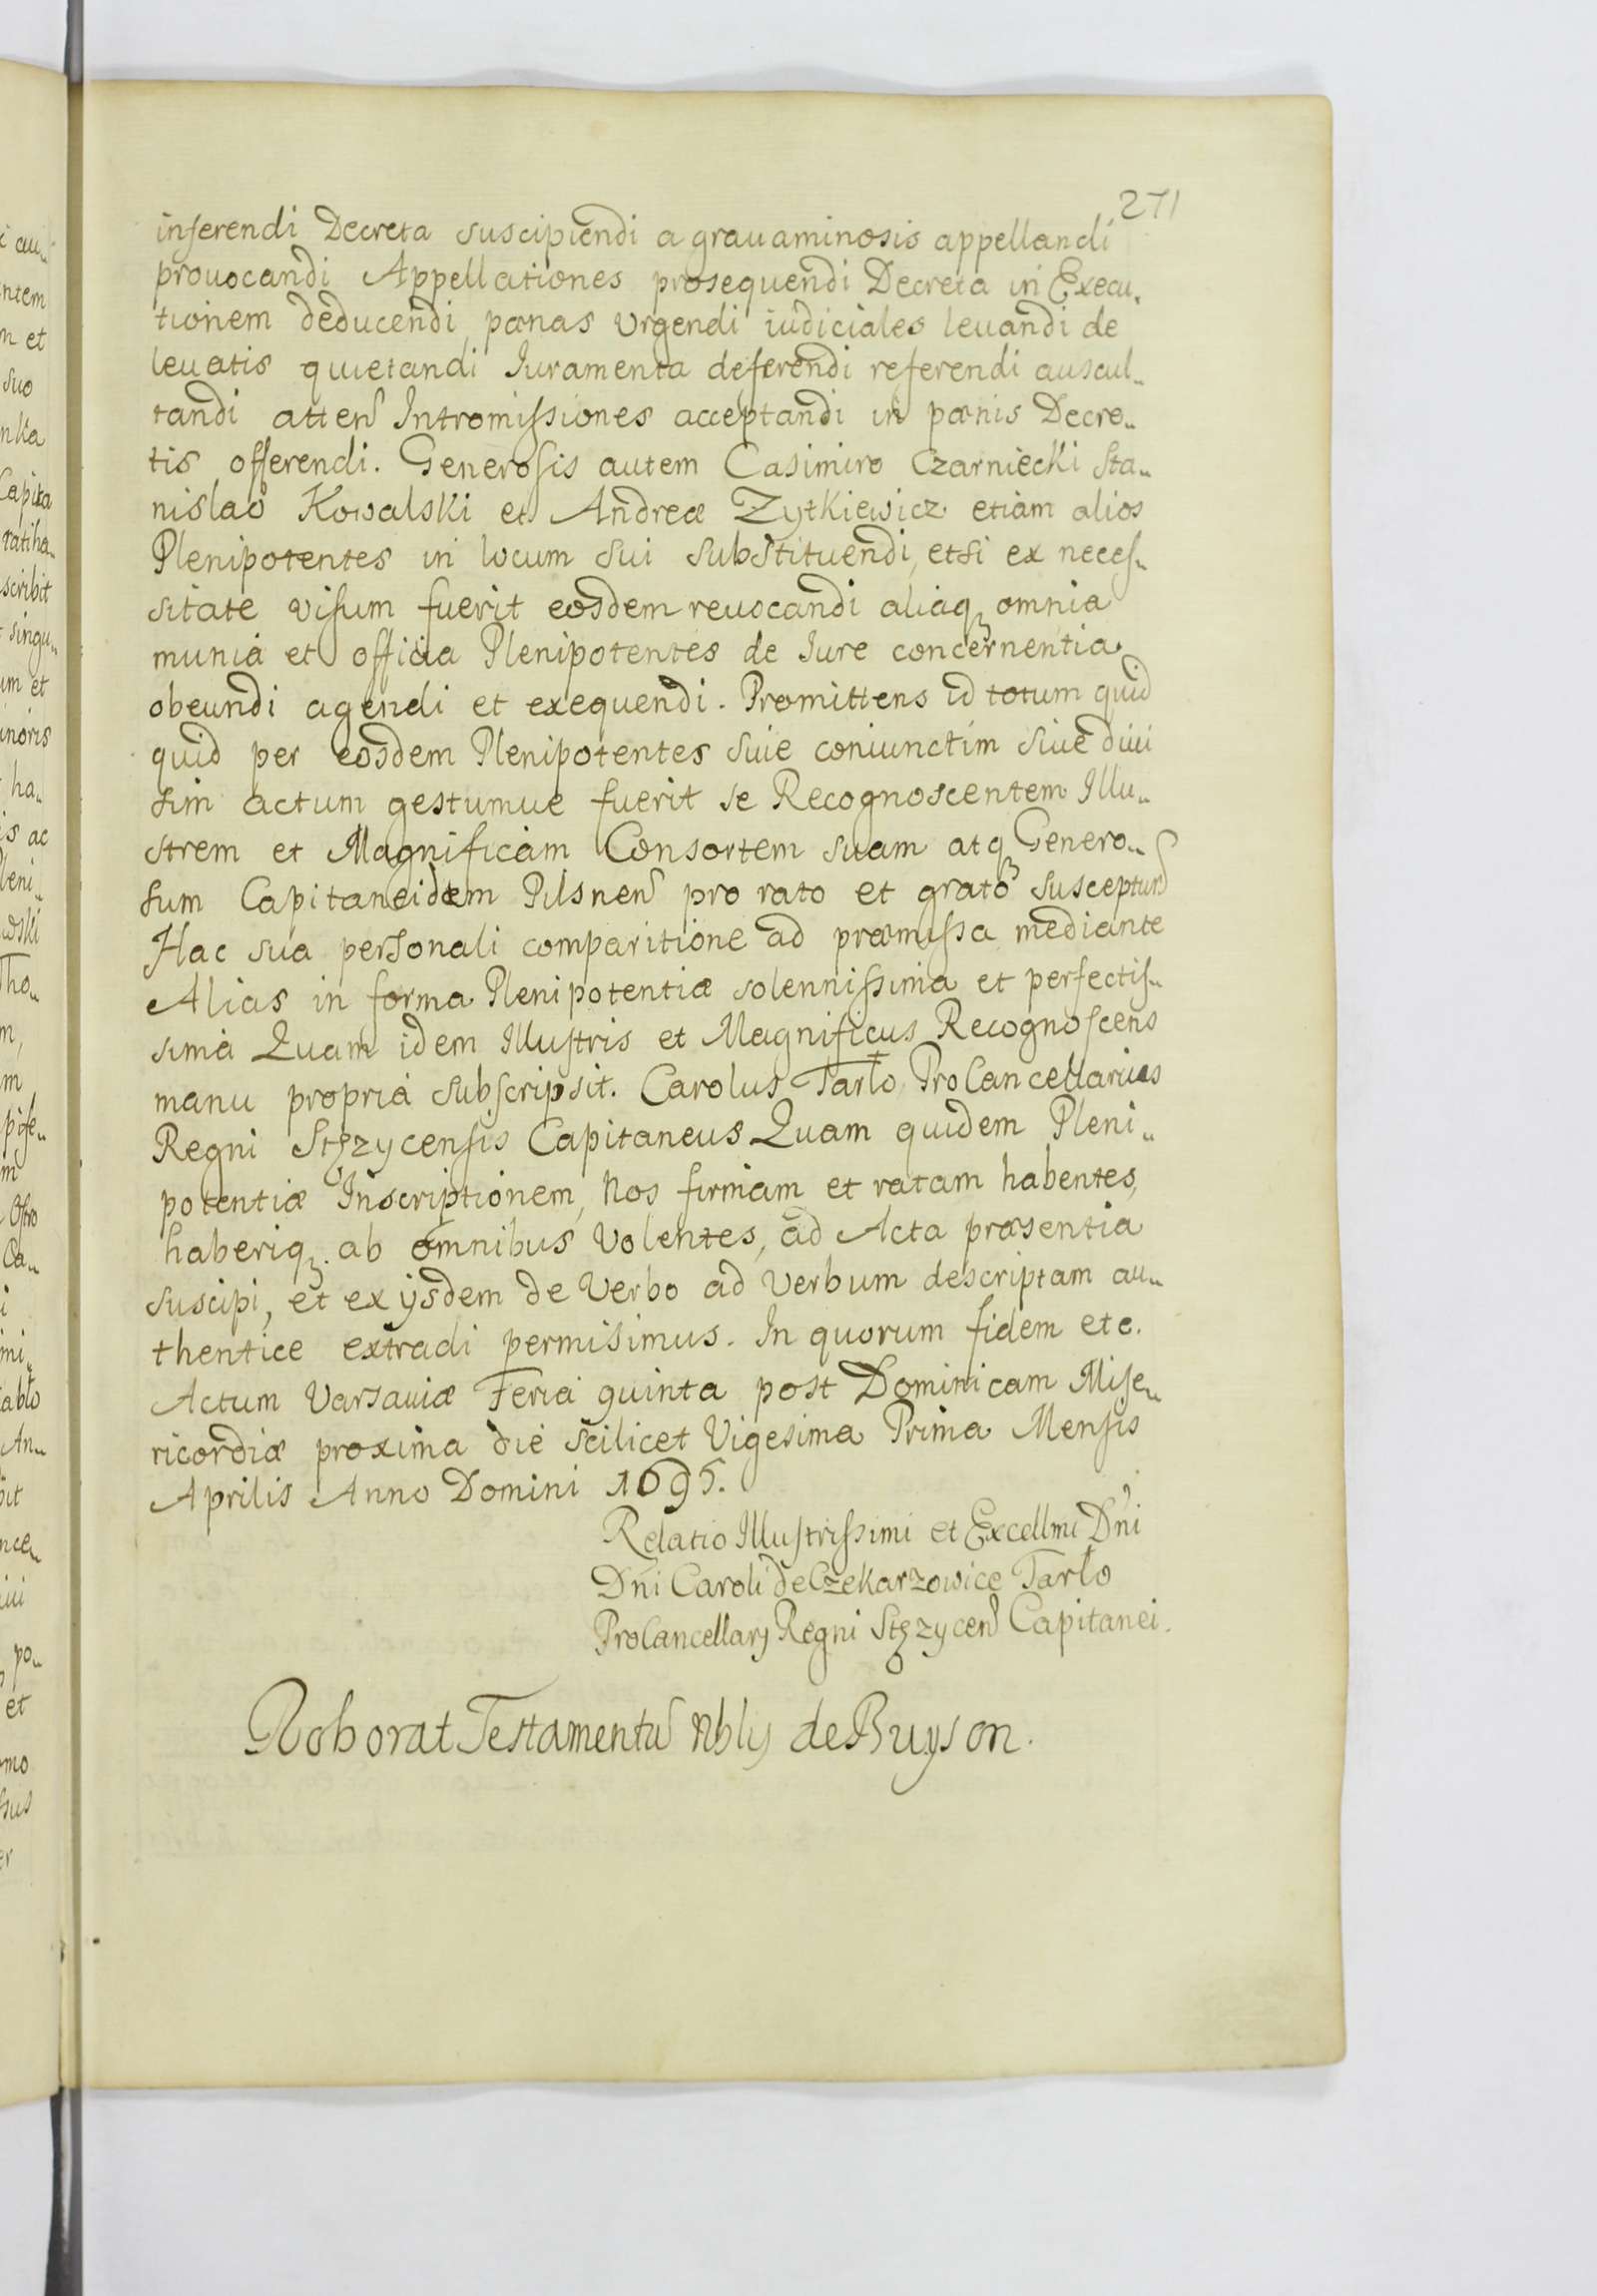 271
inferendi Decreta suscipiendi a grauaminosis appellandi
prouocandi Appellationes prosequendi Decreta in Execu„
tionem deducendi pœnas Urgendi iudiciales leuandi de
leuatis quietandi Iuramenta deferendi referendi auscul„
tandi atten Intromissiones acceptandi in pœnis Decre„
tis offerendi. Generosis autem Casimiro Czarniecki Sta„
nislao Kowalski et Andreæ Zytkiewicz etiam alios
Plenipotentes in locum sui Substituendi, etsi ex neces„
sitate visum fuerit eosdem reuocandi aliaqꝫ omnia
munia et officia Plenipotentes de Iure concernentia
obeundi agendi et exequendi. Promittens id totum quid
quid per eosdem Plenipotentes siue coniunctim siue diui
sim actum gestumue fuerit se Recognoscentem Illu„
strem et Magnificam Consortem suam atqꝫ Genero„
sum Capitaneidem Pilsnen pro rato et grato suscepturos
Hac sua personali comparitione ad præmissa mediante
Alias in forma Plenipotentiæ solennissima et perfectis„
sima Quam idem Illustris et Magnificus Recognoscens
manu propria subscripsit. Carolus Tarło ProCancellarius
Regni Stęzycensis Capitaneus Quam quidem Pleni„
potentiæ Inscriptionem, Nos firmam et ratam habentes,
haberiqꝫ. ab omnibus Volentes, ad Acta præsentia
suscipi, et ex ijsdem de Verbo ad Verbum descriptam au„
thentice extradi permisimus. In quorum fidem etc.
Actum Varsauiæ Feria quinta post Dominicam Mise„
ricordiæ proxima die scilicet Vigesima Prima Mensis
Aprilis Anno Domini 1695.
Relatio Illustrissimi et Excellmi Dni
Dni Caroli de Czekarzowice Tarło
ProCancellarij Regni Stęzycen Capitanei.
Roborat Testamentu Nblis de Buyson.